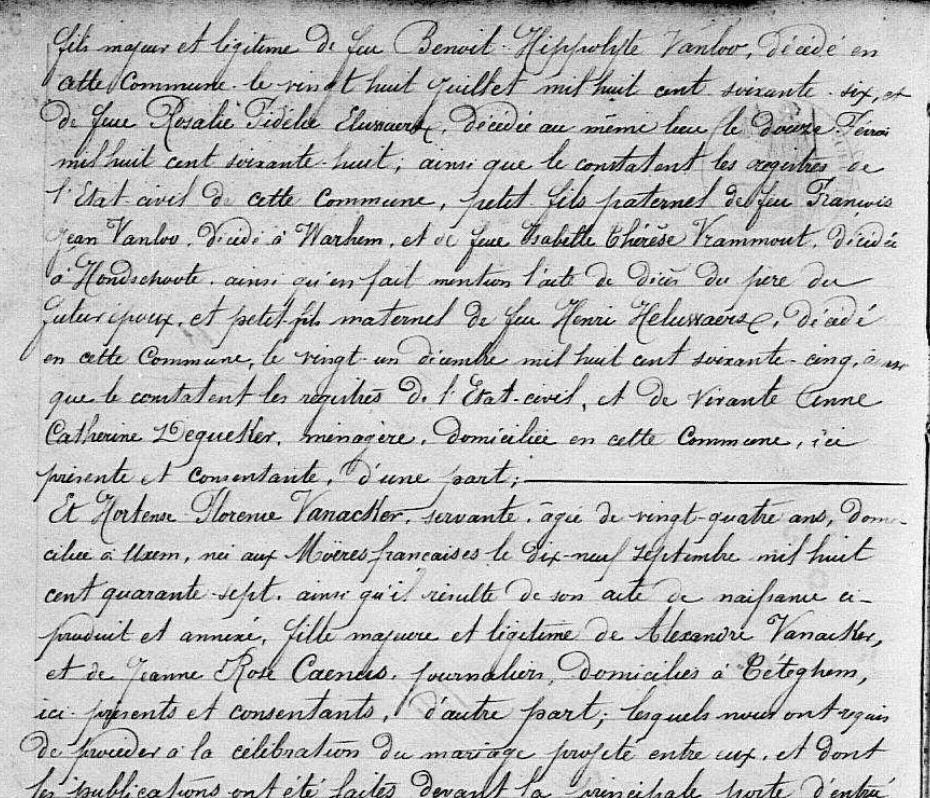 fils majeur et légitime de feu Benoit Hippolyte Vanloo, décédé en
cette Commune le vingt huit juillet mil huit cent soixante-six, et
de feue Rosalie Fidélie Elussaerx, décédée au même lieu le douze
mil huit cent soixante-huit; ainsi que le constatent les registres de
l'Etat-civil de cette Commune, petit fils paternel de feu François
Jean Vanloo, décédé à Warhem, et de feue Isabelle Thérèse Vrammout, décédée
à Hondschoote, ainsi qu'en fait mention l'acte de décès du père du
futur époux, et petit-fils maternel de feu Henri Helussaerx, décédé
en cette Commune, le vingt-un décembre mil huit cent soixante-cinq, ainsi
que le constatent les registres de l'Etat-civil, et de vivante Anne
Catherine Dequeker, ménagère, domiciliée en cette Commune, ici
présente et consentante, d'une part;
Et Hortense Florence Vanacker, servante, âgée de vingt-quatre ans, domi-
ciliée à Uxem, née aux Moëres françaises le dix-neuf septembre mil huit
cent quarante-sept, ainsi qu'il résulte de son acte de naissance ci-
produit et annexé, fille majeure et légitime de Alexandre Vanacker,
et de Jeanne Rose Caeneis, journaliers, domiciliés à Téteghem,
ici présents et consentants, d'autre part; lesquels nous ont requis
de procéder à la célébration du mariage projeté entre eux, et dont
les publications ont été faites devant la principale porte d'entré